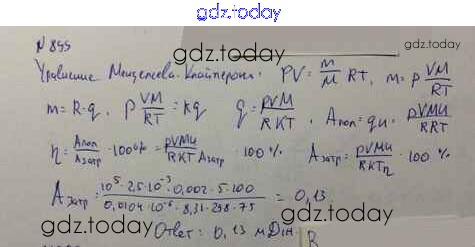 gdz.today
N 899
gdz.today
Уравнение Менделеева-Клайперона. PV = m/M RT, m = p VM/RT
gdz.today
m = R·q, p VM/RT = kq q = pVM/RKT, Aпол = qu, pVMU/RRT
η = Aпол/Aзатр · 100% = pVMU/RKT Aзатр · 100% Aзатр = pVMU/RKTη · 100%
Aзатр = 10⁵·25·10⁻³·0,002·5·100/0,0104·10⁻⁶·8,31·298·75 = 0,13
gdz.today
gdz.today
Ответ: 0,13 мДж